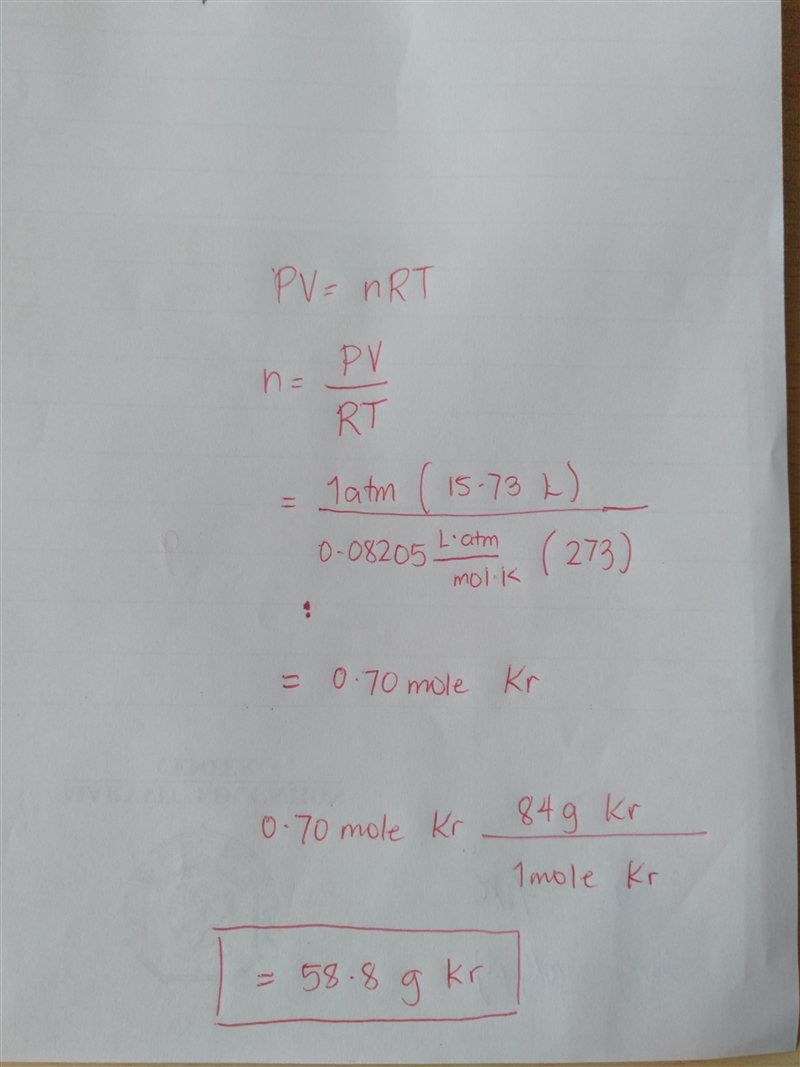 PV = nRT
n = PV
RT
= 1atm ( 15.73 L)
0.08205 L.atm (273)
mol.K
= 0.70 mole Kr
0.70 mole Kr 84g Kr
1mole Kr
= 58.8 g Kr